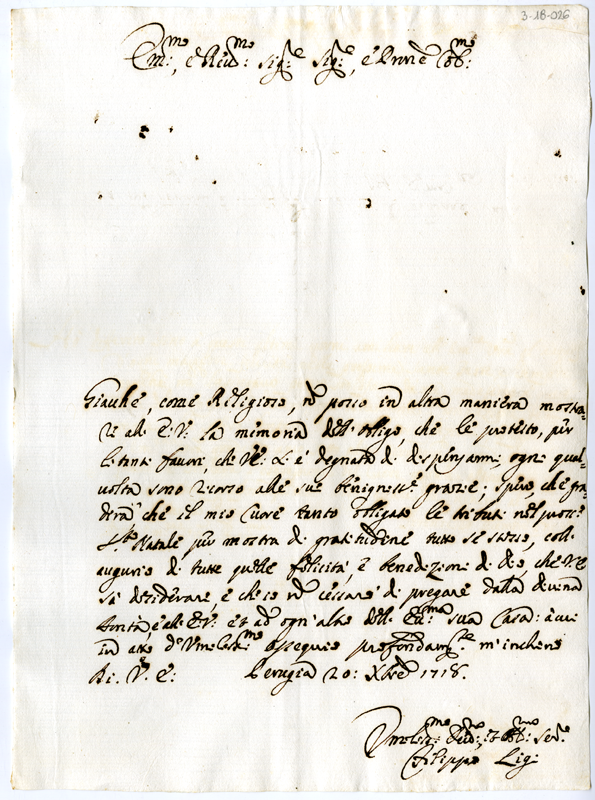 3-18-026
Em:mo, e Reu:mo: Sig:re Sig:re, e Prone Col:mo:
Giache, come Religioso, nõ posso in altra maniera mostra-
re all' E: V: la memoria dell' obligo, che le protesto, per
le tante favori, che V: E: si è degnata di dispensarmi, ogni qual
volta sono ricorso alle sue benigniss:e grazie; spero, che gra-
dirà, che il mio cuore tanto obligato le tributi nel pross:o
S:to Natale per mostra di gratitudine tutto se stesso, coll'
augurio di tutte quelle felicità, e benedizioni di Dio, che V: E:
sà desiderare, e che io nõ cessarò di pregare dalla divina
bontà, e all' E: V: et ad ogn' altro dell' Em:ma sua Casa: à cui
in atto d' Vmiliss:mo ossequio profondam:te m' inchino
Di V: E: Perugia 20: Xbre 1718.
Vmiliss:mo Deu:mo, et Obl:mo Ser:e
Filippo Ligi